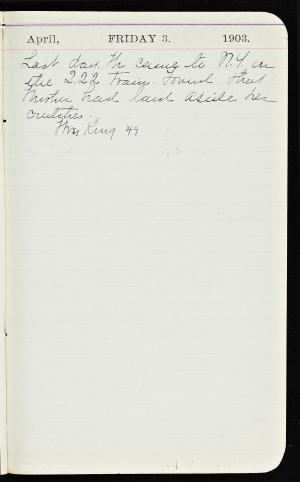 April, FRIDAY 3. 1903.
Last day. We came to N.Y. on
the 2,22 train. Found that
Mother had laid aside her
crutches.
Mrs King 49